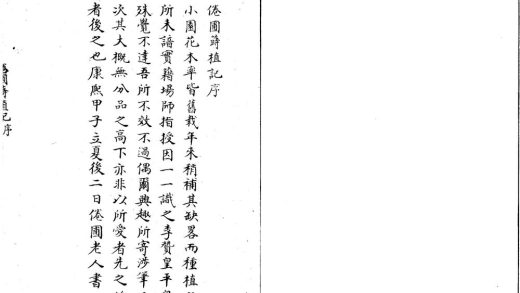 倦圃蒔植記序
小園花木率皆舊栽年來稍補其缺畧而種植
所未諳實藉場師指授因一一識之李贊皇平
殊覺不達吾所不效不過偶爾興趣所寄涉筆
次其大概無分品之高下亦非以所愛者先之
者後之也康熙甲子立夏後二日倦圃老人書
倦圃蒔植記序